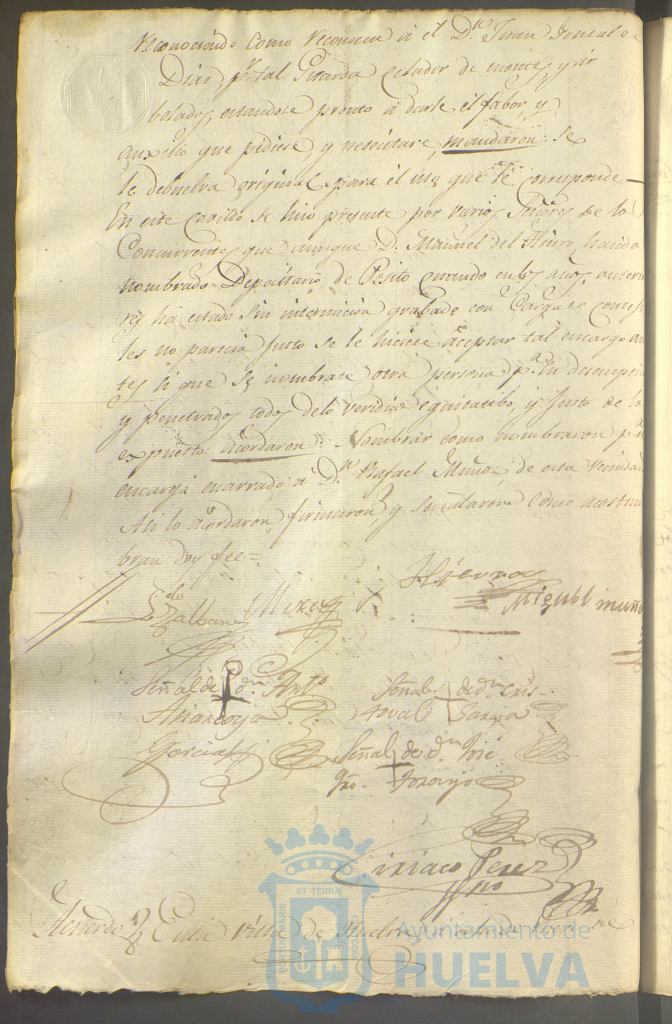 reconociendo como reconocen á el Dn. Juan
Dias, pr. tal Guarda celador de montes, y ar
bolados, estandose pronto á darle el fabor, y
auxilio que pidiese y nesecitare, mandaron: se
le debuelva original para el uso que le corresponde
En este cavildo se hiso presente por varios Señores de lo
Concurrentes que aunque D. Manuel del Hierro, ha sido
nombrado Depocitario de Posito quando en los años, anterio
res ha estado sin intermicion grabado con Cargas conse
les no parecia justo se le hiciese aceptar tal encargo an
tes si que se nombrase otra persona pa. su decempeñ
y penetrados todos de lo veridico equitatibo, y justo de lo
expuesto: acordaron: Nombrar como nombraron pa.
encargo á Dn. Rafael Muños, de esta Vecindad
Asi lo acordaron, firmaron, y señalaron como acostum
bran doy fee=
Ldo. Zalbane
Hierro
Miguel muño
Señal de dn. Anto
Señal de dn. Cris-
toval Garzia
Garcia
Señal de dn. José
Toscayo
Ciriaco Perez
Acuerdo En la Villa de Huelva
ET TERRÆ
PORTUS MARIS
CUSTODIA
Ayuntamiento de
HUELVA